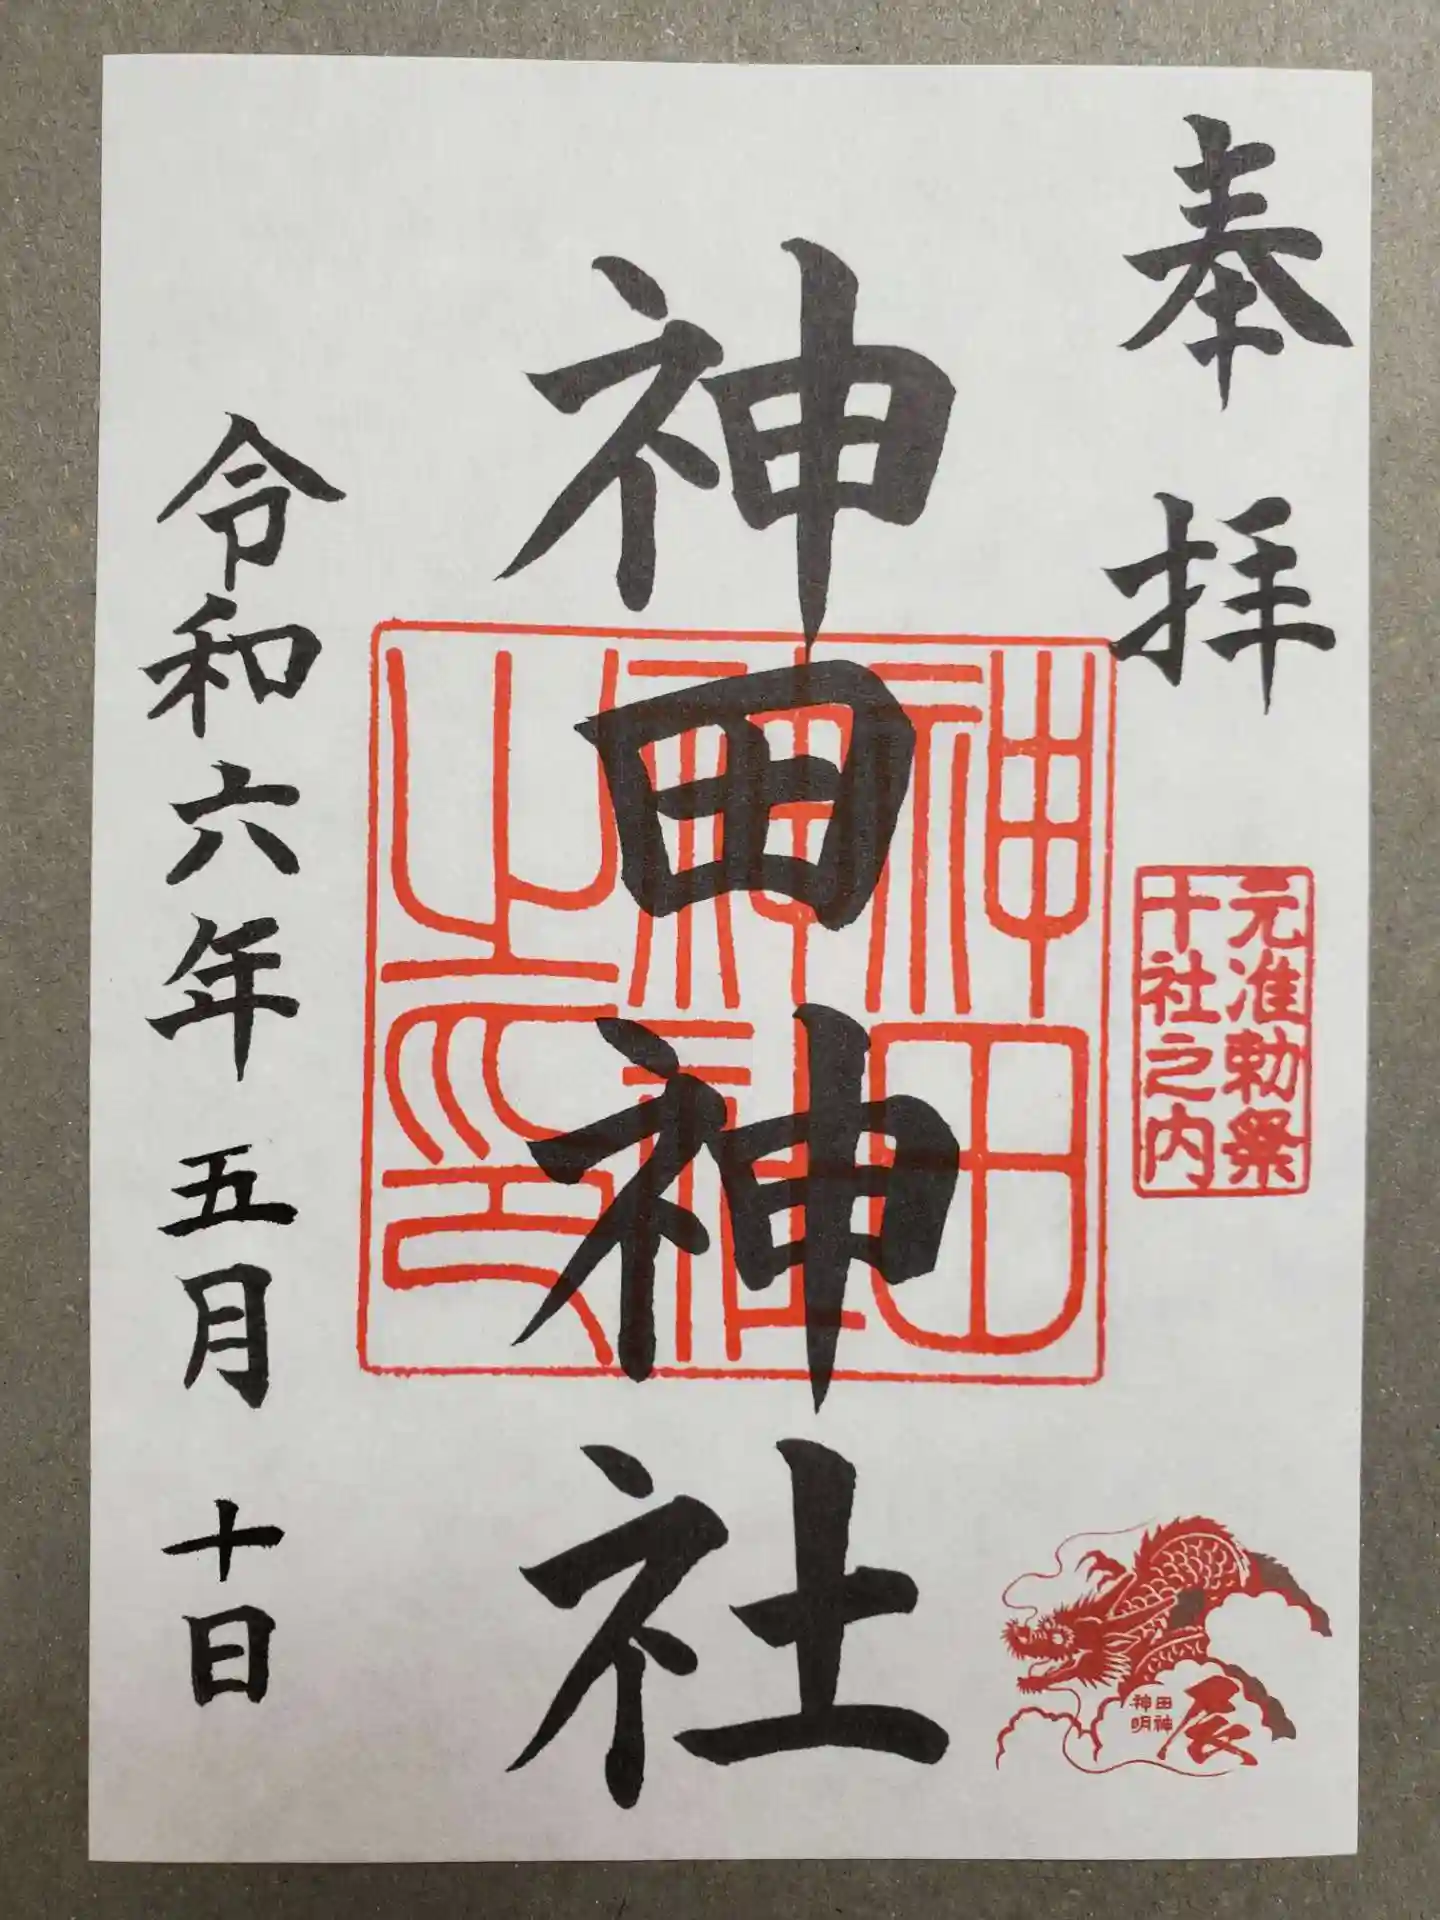 奉拝
元准勅祭
十社之内
神田神社
神田
神社
之印
令和六年五月十日
辰
神田
明神